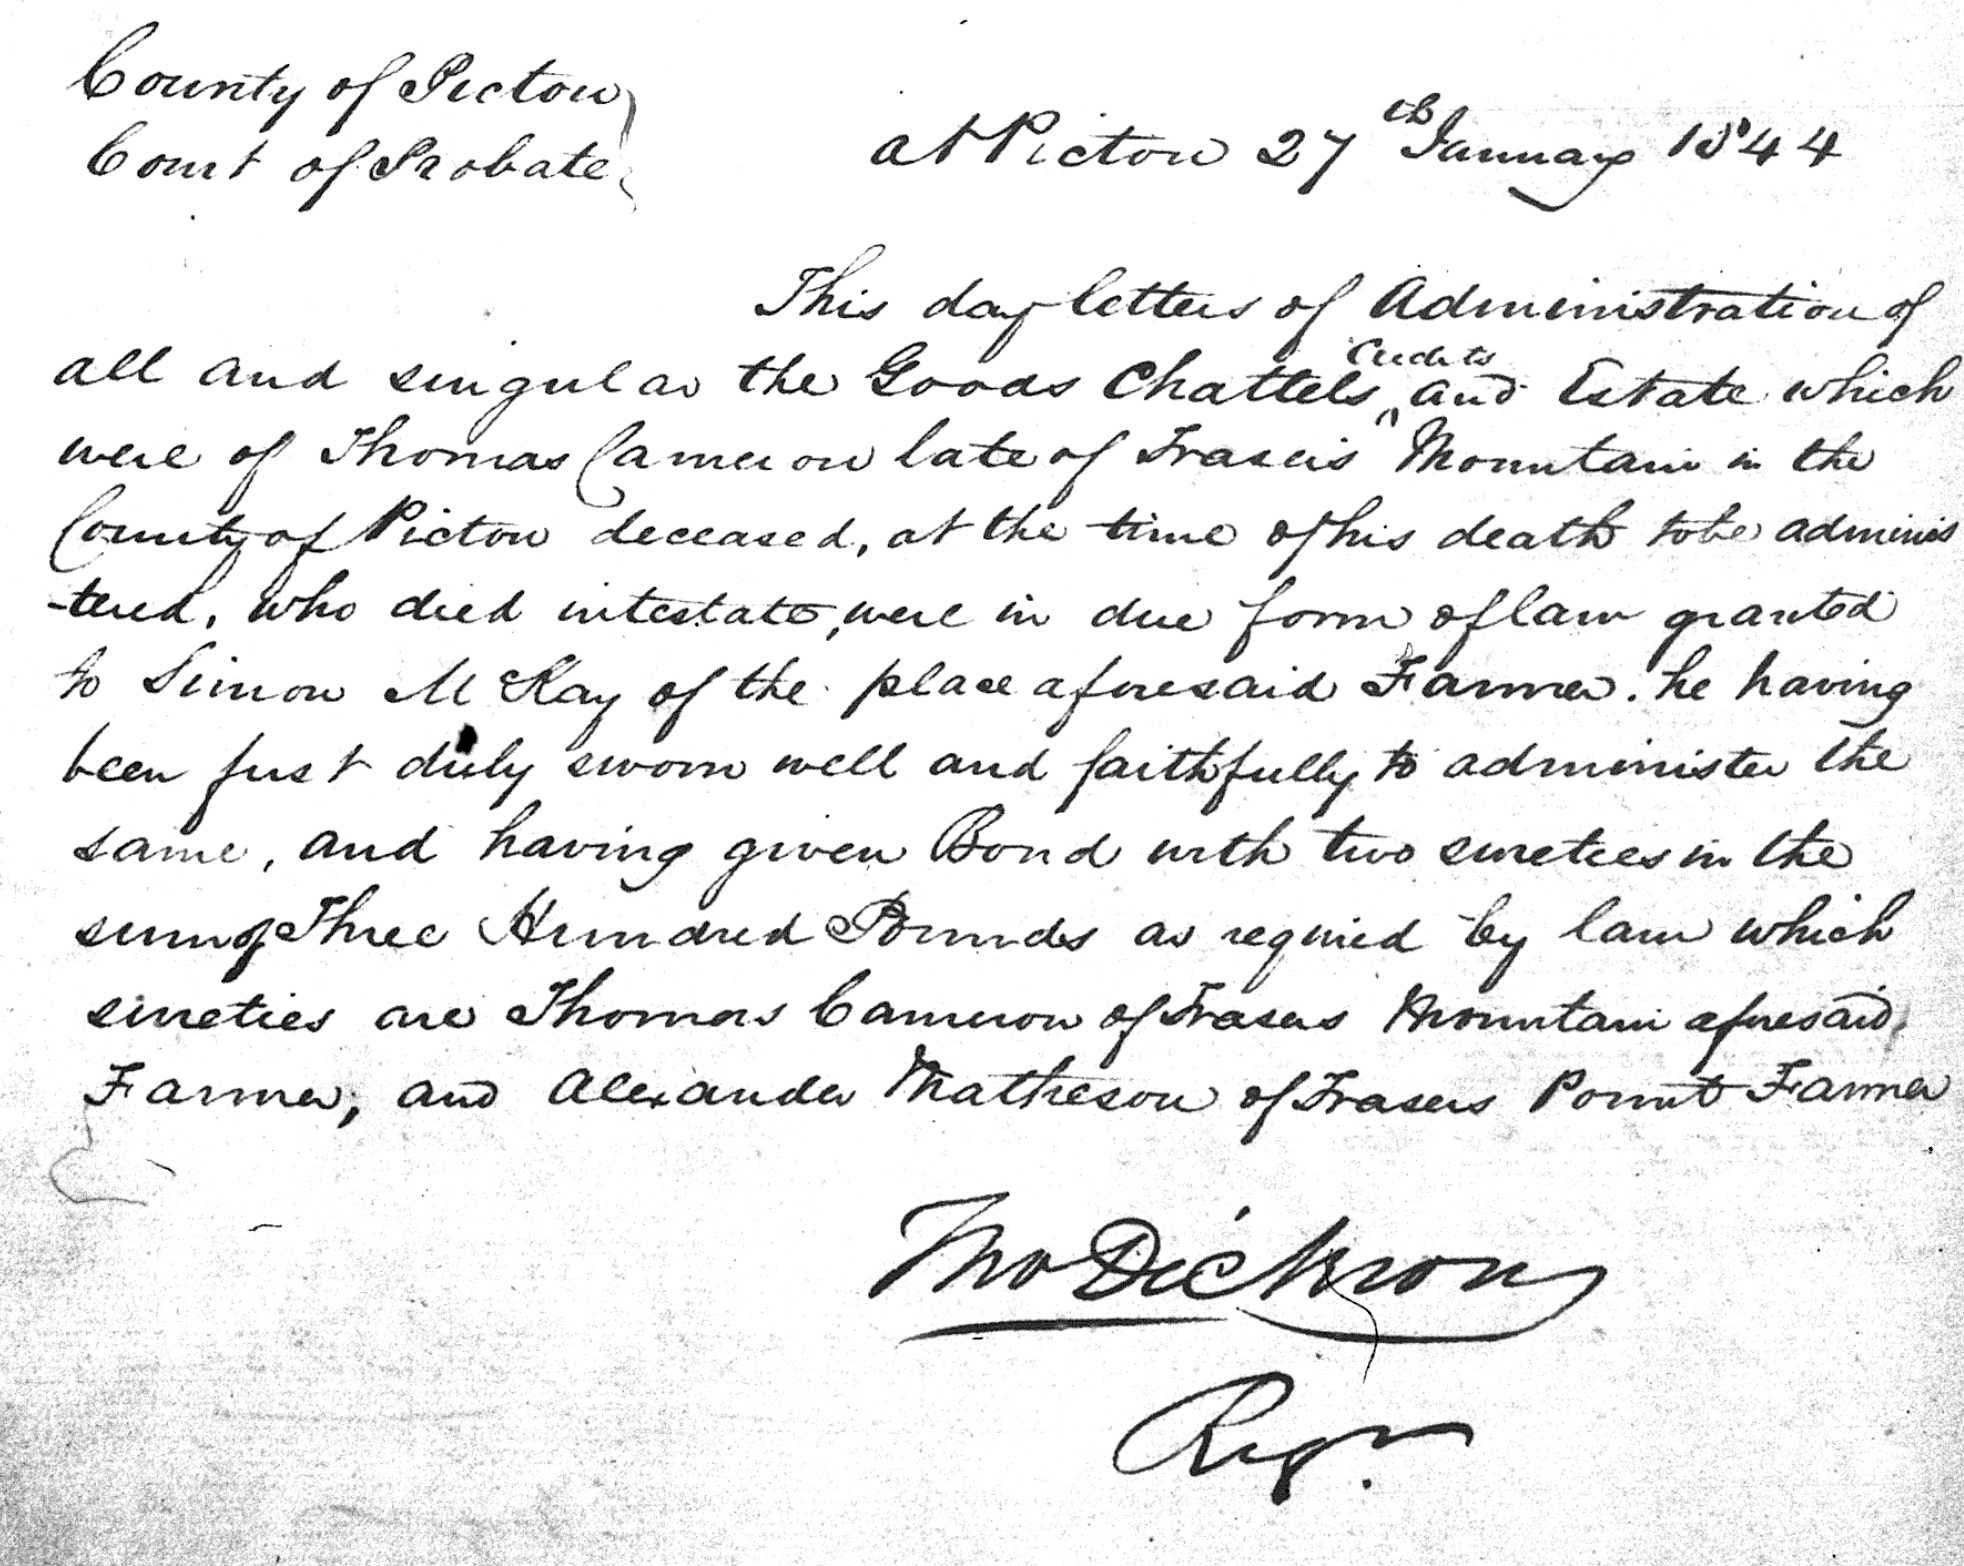 County of Pictou
Court of Probate
at Pictou 27th January 1844
This day letters of Administration of
all and singular the Goods Chattels Credits and Estate which
were of Thomas Cameron late of Frasers Mountain in the
County of Pictou deceased, at the time of his death to be adminis
-tered, who died intestate, were in due form of law granted
to Simon McKay of the place aforesaid Farmer. he having
been first duly sworn well and faithfully to administer the
same, and having given Bond with two sureties in the
sum of Three Hundred Pounds as required by law which
sureties are Thomas Cameron of Frasers Mountain aforesaid,
Farmer, and Alexander Matheson of Frasers Point Farmer
Tho Dickson
Regr.